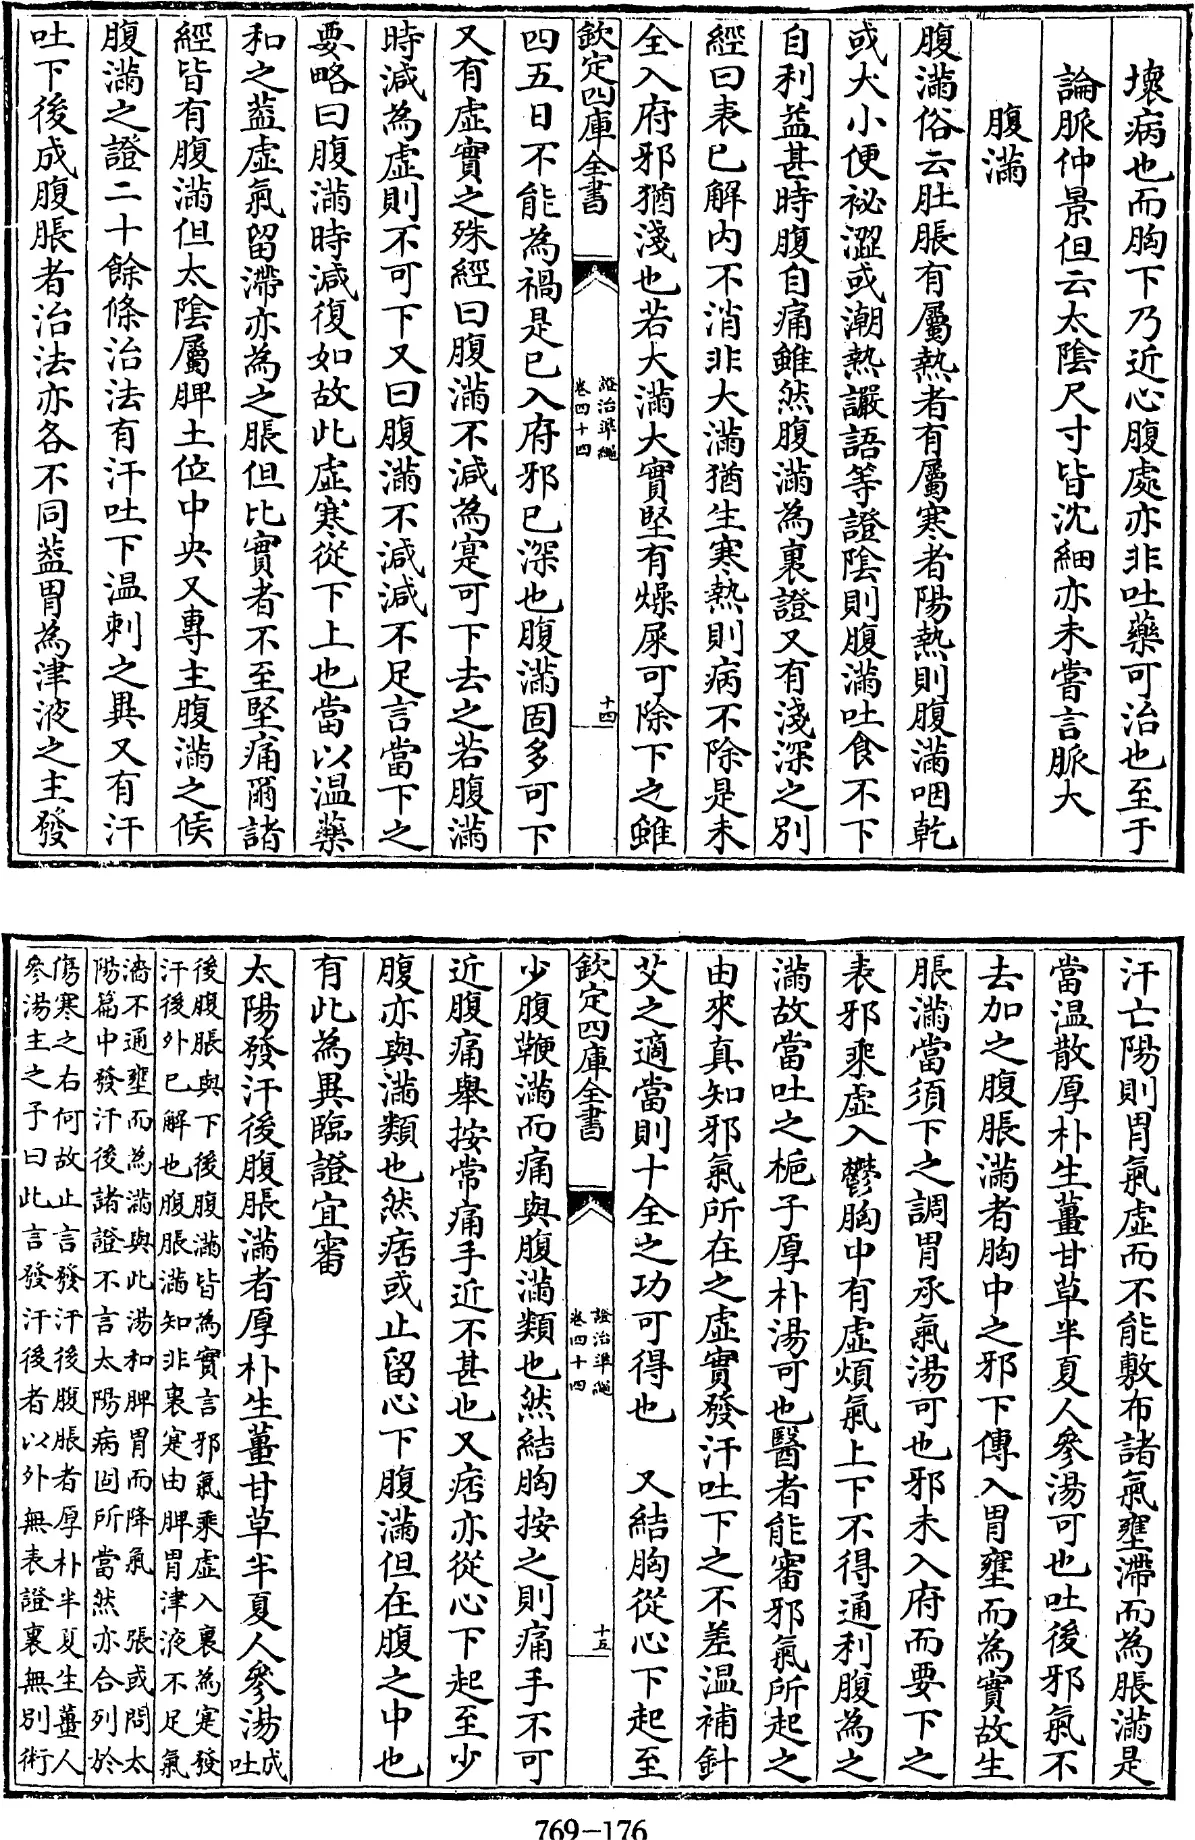 壞病也而胸下乃近心腹處亦非吐藥可治也至于
論脈仲景但云太陰尺寸皆沈細亦未嘗言脈大
腹滿
腹滿俗云肚脹有屬熱者有屬寒者陽熱則腹滿咽乾
或大小便祕澀或潮熱讝語等證陰則腹滿吐食不下
自利益甚時腹自痛雖然腹滿為裏證又有淺深之別
經曰表已解內不消非大滿猶生寒熱則病不除是未
全入府邪猶淺也若大滿大實堅有燥屎可除下之雖
欽定四庫全書 證治準繩 卷四十四 十四
四五日不能為禍是已入府邪已深也腹滿固多可下
又有虛實之殊經曰腹滿不減為寔可下去之若腹滿
時減為虛則不可下又曰腹滿不減減不足言當下之
要略曰腹滿時減復如故此虛寒從下上也當以温藥
和之蓋虛氣留滯亦為之脹但比實者不至堅痛爾諸
經皆有腹滿但太陰屬脾土位中央又專主腹滿之候
腹滿之證二十餘條治法有汗吐下温刺之異又有汗
吐下後成腹脹者治法亦各不同蓋胃為津液之主發
汗亡陽則胃氣虛而不能敷布諸氣壅滯而為脹滿是
當温散厚朴生薑甘草半夏人參湯可也吐後邪氣不
去加之腹脹滿者胸中之邪下傳入胃壅而為實故生
脹滿當須下之調胃承氣湯可也邪未入府而要下之
表邪乘虛入鬱胸中有虛煩氣上下不得通利腹為之
滿故當吐之梔子厚朴湯可也醫者能審邪氣所起之
由來真知邪氣所在之虛實發汗吐下之不差温補針
艾之適當則十全之功可得也 又結胸從心下起至
欽定四庫全書 證治準繩 卷四十四 十五
少腹鞕滿而痛與腹滿類也然結胸按之則痛手不可
近腹痛舉按常痛手近不甚也又痞亦從心下起至少
腹亦與滿類也然痞或止留心下腹滿但在腹之中也
有此為異臨證宜審
太陽發汗後腹脹滿者厚朴生薑甘草半夏人參湯成吐
後腹脹與下後腹滿皆為實言邪氣乘虛入裏為寔發
汗後外已解也腹脹滿知非裏寔由脾胃津液不足氣
濇不通壅而為滿與此湯和脾胃而降氣 張或問太
陽篇中發汗後諸證不言太陽病固所當然亦合列於
傷寒之右何故止言發汗後腹脹者厚朴半夏生薑人
參湯主之予曰此言發汗後者以外無表證裏無別術
769-176